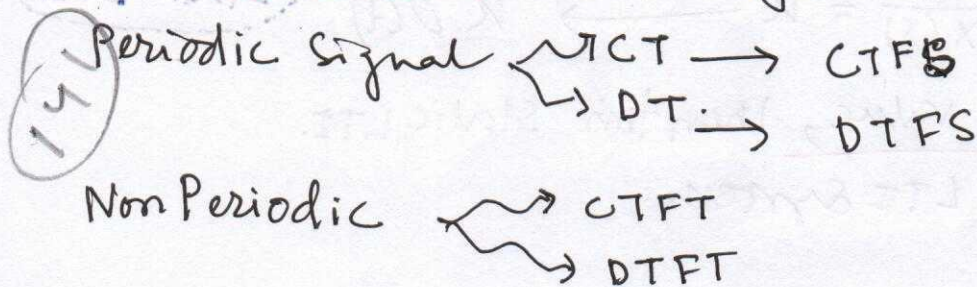 Periodic signal CT → CTFS
DT. → DTFS
Non Periodic CTFT
DTFT